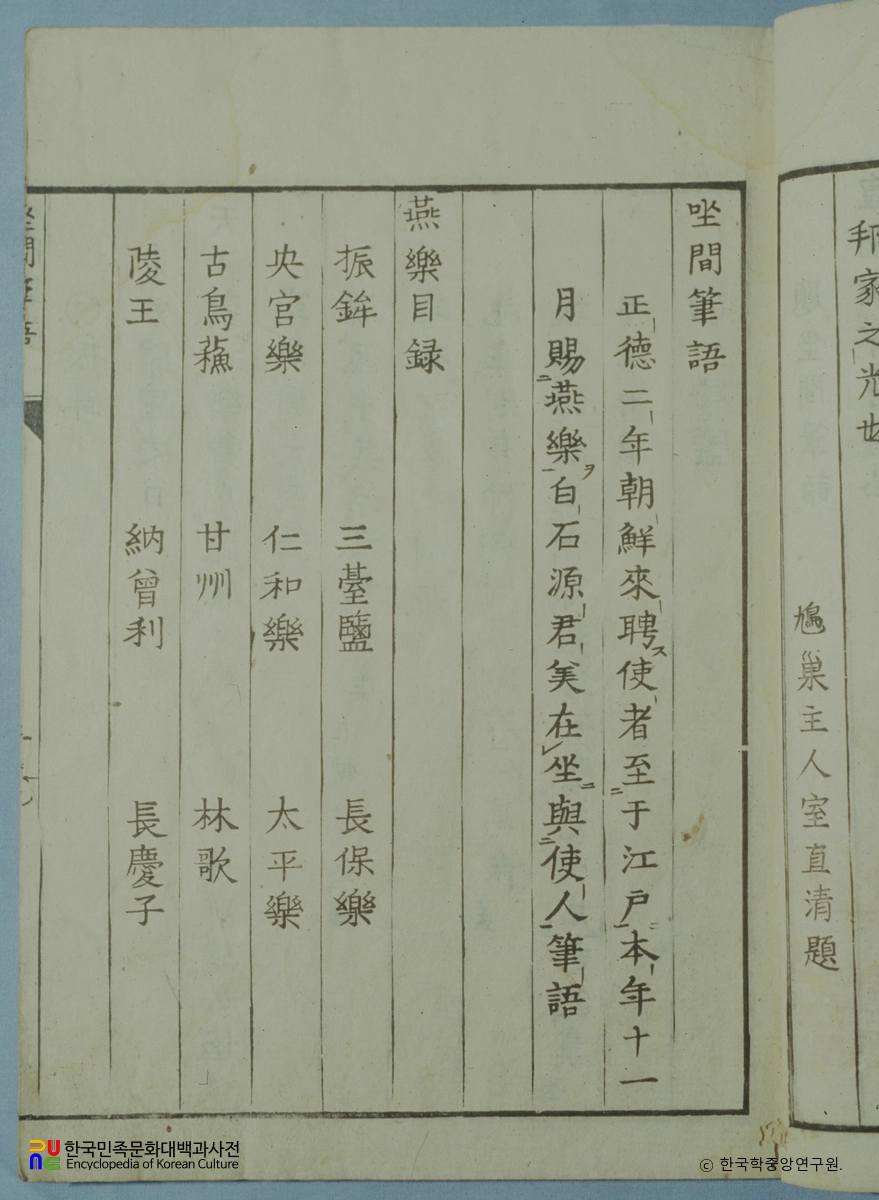 邦家之光也
鳩巢主人室直清題
坐間筆語
正德二年朝鮮來聘ス使者至二于江戶一本年十一
月賜二燕樂一ヲ白石源君美在レ坐二與二使人一筆語
燕樂目録
振鉾 三臺鹽 長保樂
央宮樂 仁和樂 太平樂
古鳥蘓 甘州 林歌
陵王 納曾利 長慶子
坐間筆語
한국민족문화대백과사전
Encyclopedia of Korean Culture
ⓒ 한국학중앙연구원.